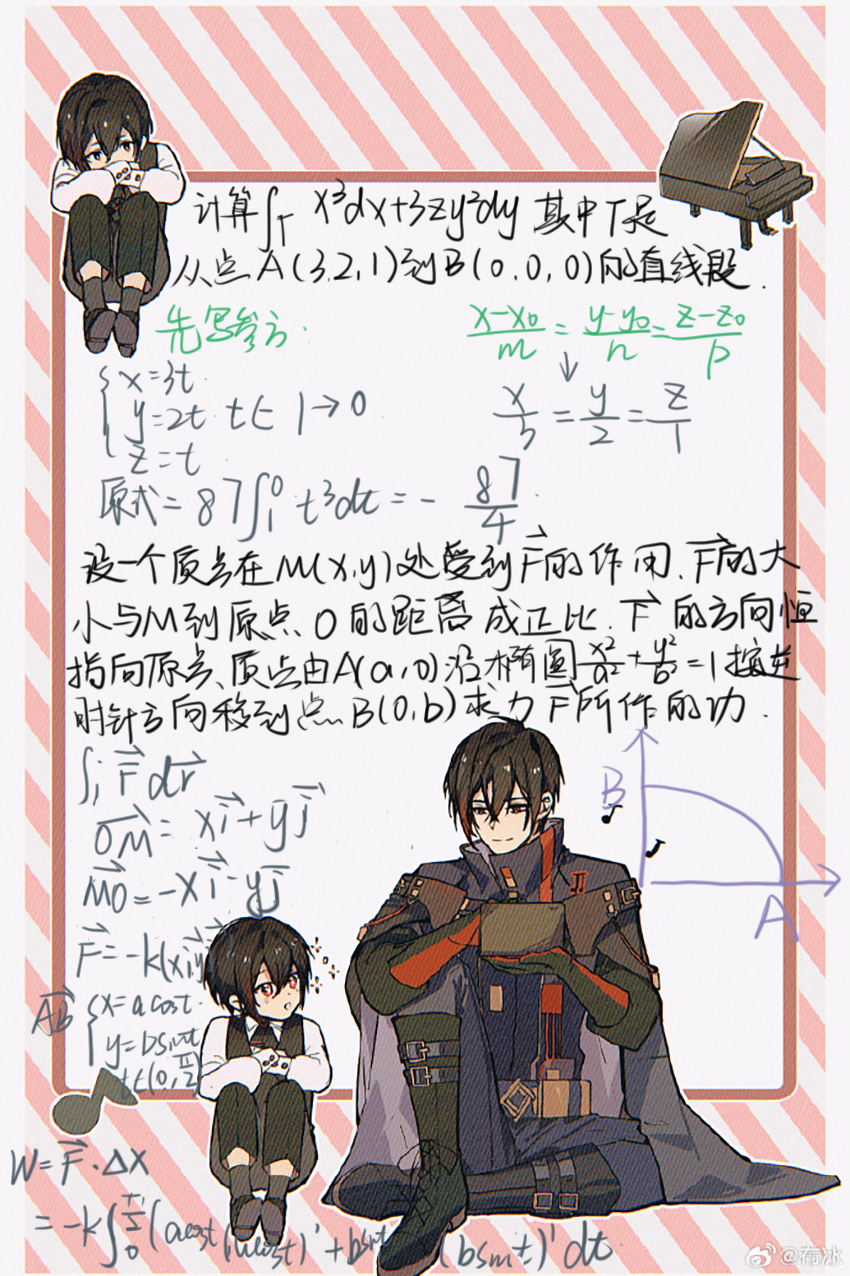 计算∫_T x³dx+3zy²dy 其中T是
从点A(3,2,1)到B(0,0,0)的直线段.
先写参方.
(x-x₀)/m = (y-y₀)/n = (z-z₀)/p
↓
x/3 = y/2 = z/1
{x=3t
y=2t t∈ 1→0
z=t
原式=87∫₁⁰ t³dt=- 87/4.
设一个质点在M(x,y)处受到F⃗的作用、F⃗的大
小与M到原点O的距离成正比.F⃗的方向恒
指向原点、质点由A(a,0)沿椭圆x²/a²+y²/b²=1按逆
时针方向移到点B(0,b)求力F⃗所作的功.
B
A
∫ F⃗ dr⃗
OM⃗=xi⃗+yj⃗
MO⃗=-xi⃗-yj⃗
F⃗=-k(xi⃗+y
AB⃗ {x=acost.
y=bsint
t∈(0,π/2)
W=F⃗·Δx
=-k∫₀^(π/2)(acost(acost)'+bsint(bsint)'dt
@布冰